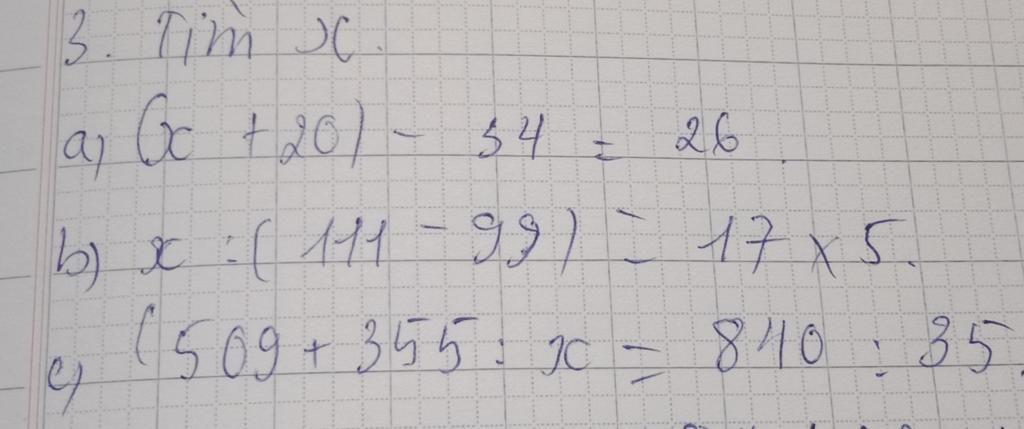 3. Tìm x.
a) (x + 20) - 54 = 26.
b) x : ( 111 - 99) = 17 x 5.
c) (509 + 355 : x = 840 : 35.